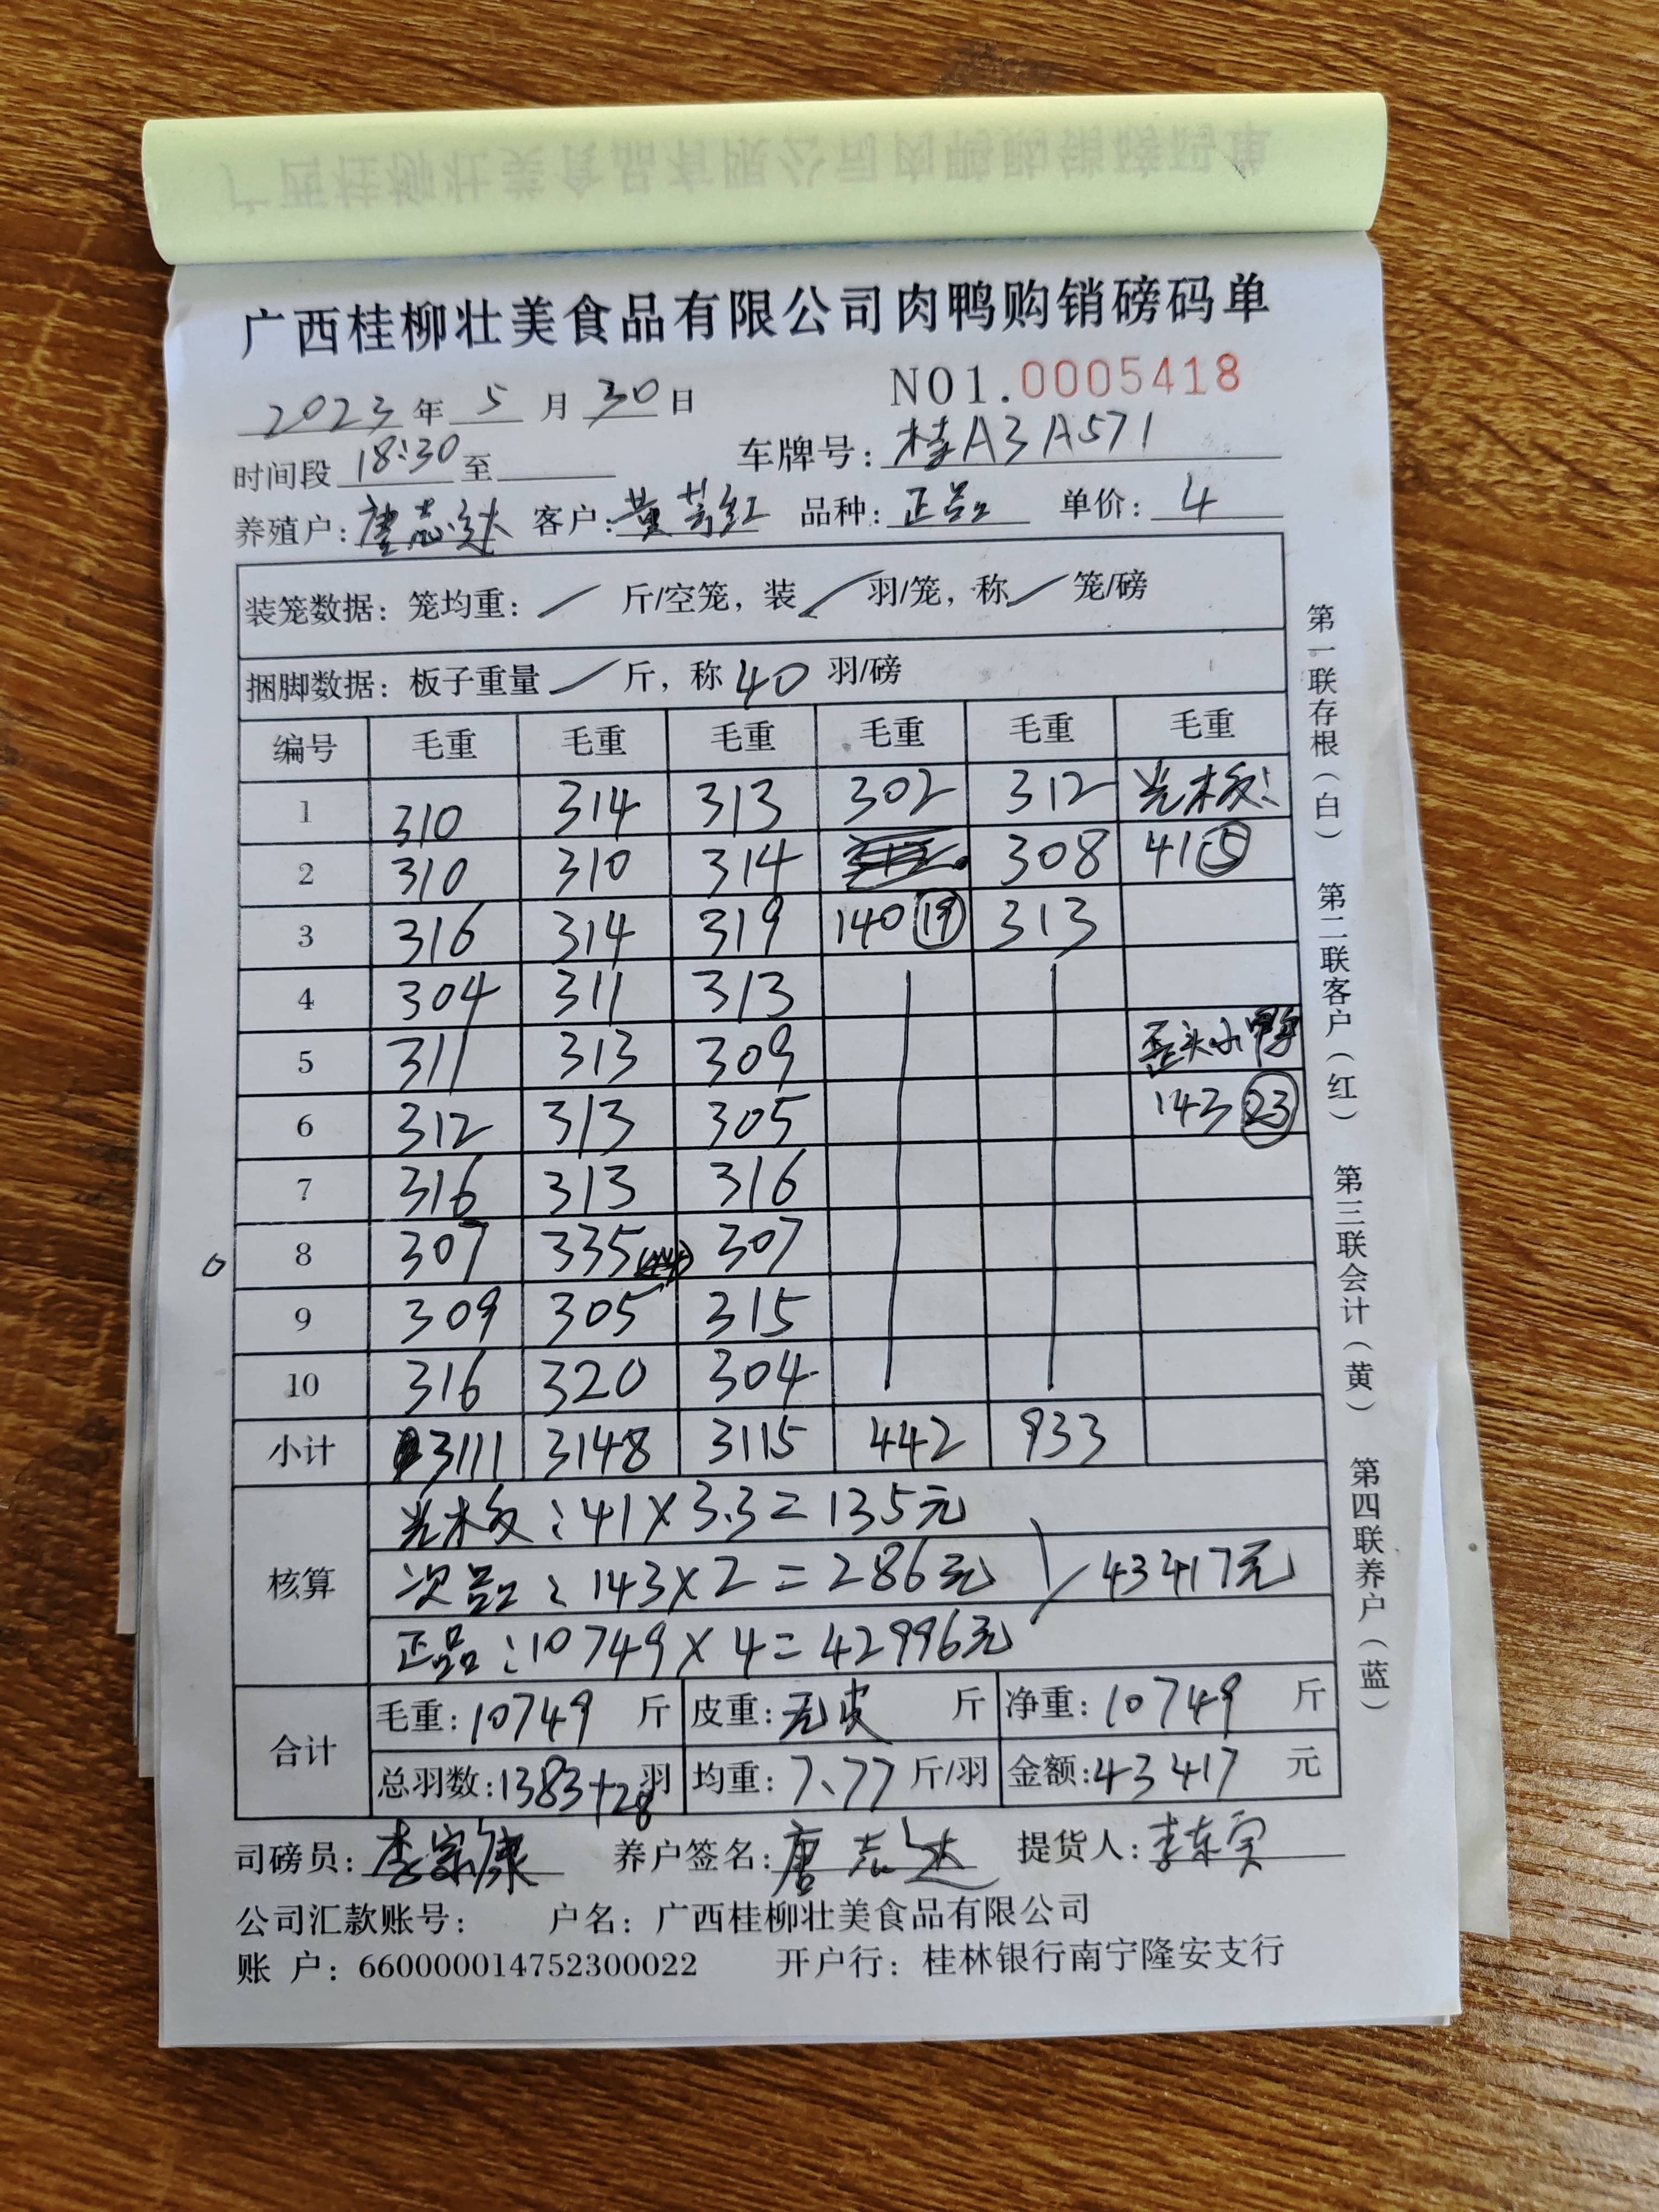 广西桂柳壮美食品有限公司肉鸭购销磅码单
广西桂柳壮美食品有限公司肉鸭购销磅码单
2023年 5 月 30 日 NO1.0005418
时间段 18:30 至 车牌号: 桂A3A571
养殖户: 唐志达 客户: 黄芳红 品种: 正品 单价: 4
装笼数据: 笼均重: / 斤/空笼, 装 / 羽/笼, 称 / 笼/磅
捆脚数据: 板子重量 / 斤, 称 40 羽/磅
编号 毛重 毛重 毛重 毛重 毛重 毛重
1 310 314 313 302 312 光板:
2 310 310 314 308 41⑤
3 316 314 319 140⑲ 313
4 304 311 313
5 311 313 309 歪头小鸭
6 312 313 305 143㉓
7 316 313 316
8 307 335 307
9 309 305 315
10 316 320 304
小计 3111 3148 3115 442 933
核算
光板:41×3.3=135元
次品:143×2=286元 43417元
正品:10749×4=42996元
合计
毛重: 10749 斤 皮重: 无皮 斤 净重: 10749 斤
总羽数: 1383+28 羽 均重: 7.77 斤/羽 金额: 43417 元
司磅员: 李家康 养户签名: 唐志达 提货人: 李东
公司汇款账号: 户名: 广西桂柳壮美食品有限公司
账 户: 660000014752300022 开户行: 桂林银行南宁隆安支行
第一联存根(白) 第二联客户(红) 第三联会计(黄) 第四联养户(蓝)